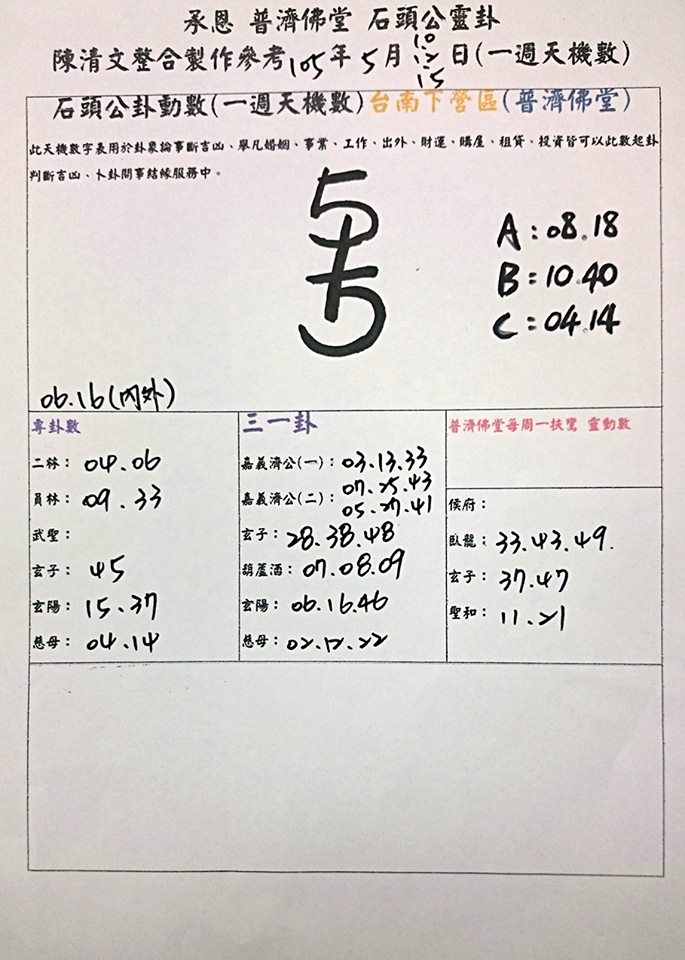 承恩 普濟佛堂 石頭公靈卦
陳清文整合製作參考105年5月10.12.15日(一週天機數)
石頭公卦動數(一週天機數)台南下營區(普濟佛堂)
此天機數字表用於卦象論事斷吉凶、舉凡婚姻、事業、工作、出外、財運、購屋、租貸、投資皆可以此數起卦
判斷吉凶、卜卦問事結緣服務中。
A:08.18
B:10.40
C:04.14
06.16(內外)
專卦數
二林: 04.06
員林: 09.33
武聖:
玄子: 45
玄陽: 15.37
慈母: 04.14
三一卦
嘉義濟公(一): 03.13.33
嘉義濟公(二): 07.25.43
05.27.41
玄子: 28.38.48
葫蘆酒: 07.08.09
玄陽: 06.16.46
慈母: 02.12.22
普濟佛堂每周一扶鸞 靈動數
侯府:
臥龍: 33.43.49.
玄子: 37.47
聖和: 11.21